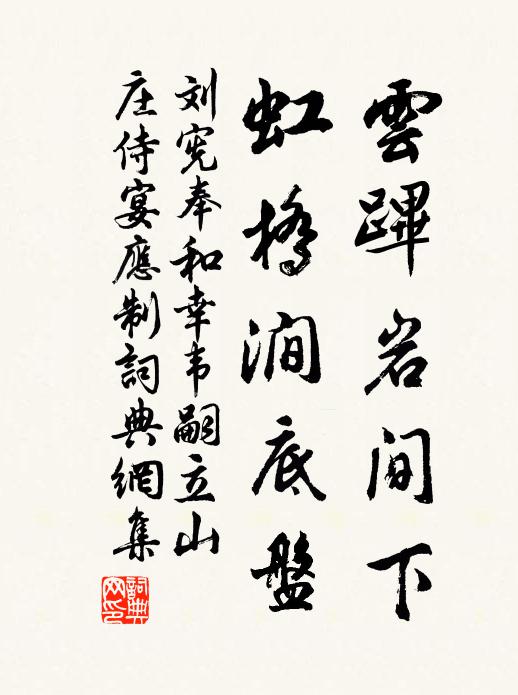 雲蹕岩间下
虹橋澗底盤
刘宪奉和幸韦嗣立山
庄侍宴應制詞典網集
詞典
网印